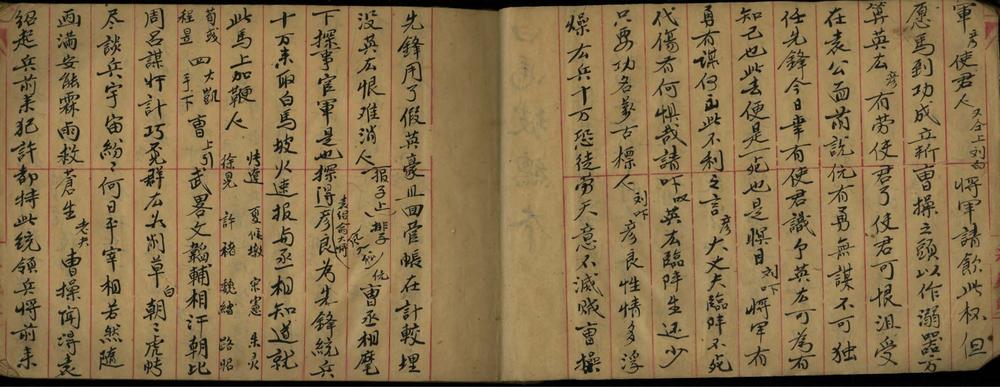 軍 彥 使君 又合上 刘白 將軍請飲此杯但
愿馬到功成立斬曹操之頭以作溺器方
算英広 彥 有劳使君了使君可恨沮受
在袁公面前說伉有勇無謀不可独
任先鋒今日幸有使君識予英広可為有
知己也此去便是一死也是愩目 刘吓 將軍有
勇有謀何出此不利之言 彥 大丈夫臨阵不死
代傷有何惧哉請吓 叹 英広臨阵生还少
只要功名萬古標 刘吓 彥良性情多浮
燥広兵十万恐徒劳天意不滅賊曹操
先鋒用了假英豪且回營帳在計較埋
没英広恨难消 報子上排子 伉 曹丞相麾
下探事官軍是也探得彥良為先鋒統兵
十万来取白馬坡火速报与丞相知道就
此馬上加鞭 夏侯墩 宋憲 朱灵 徐晃 許褚 魏續 路昭
荀彧 程昱 四大凱 手下 曹上引 武畧文韜輔相汗朝比
周呂謀忓計巧冤群広头削草 白 朝朝虎帐
尽談兵宇宙紛紛何日平宰相若然隨
画满安能霖雨救蒼生 老夫 曹操聞得袁
紹起兵前来犯許都特此統領兵將前来